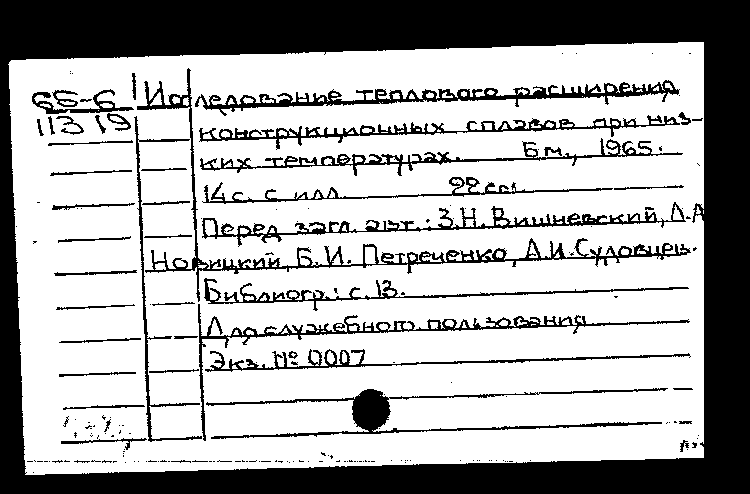 65-6 Исследование теплового расширения
113 19 конструкционных сплавов при низ-
ких температурах. Б.м., 1965.
14 с. с илл. 22 см.
Перед загл. авт.: З.Н. Вишневский, Л.А
Новицкий, Б.И. Петреченко, А.И. Судовцев.
Библиогр.: с. 13.
Для служебного пользования
Экз. № 0007